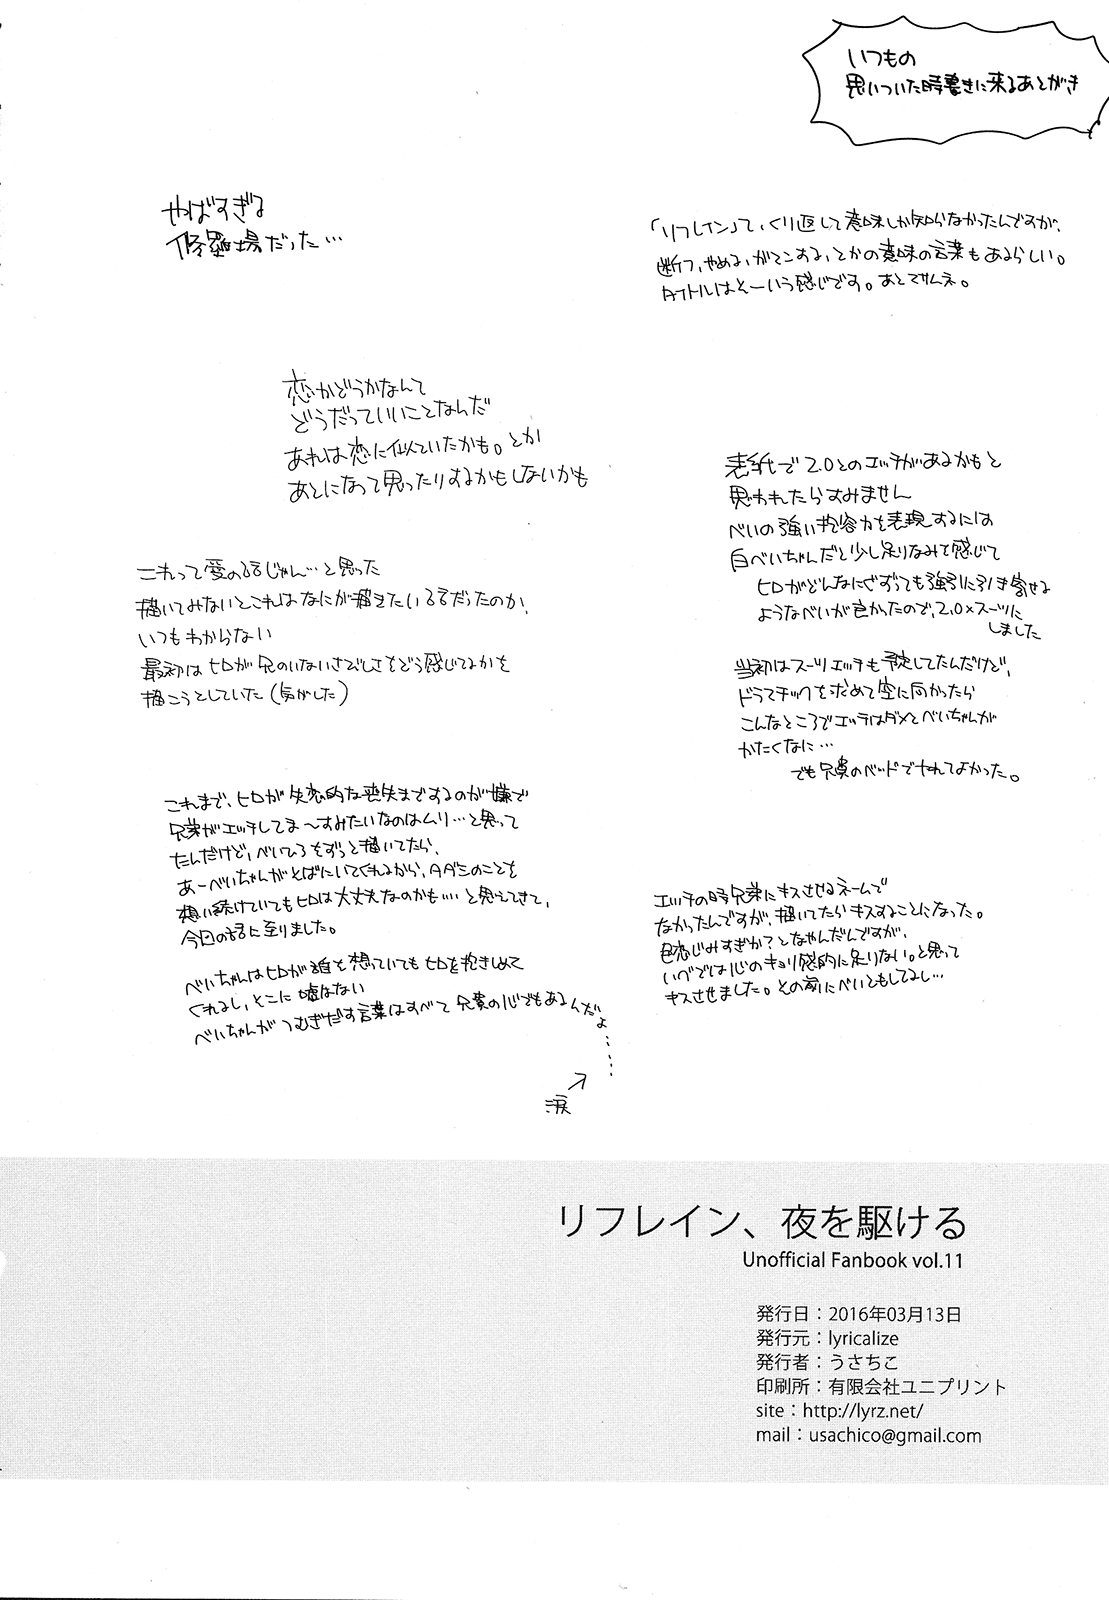 いつもの
思いついた時書きに来るあとがき
「リフレイン」て、くり返して意味しか知らなかったんですが、
断つ、やめる、がマンする、とかの意味の言葉もあるらしい。
タイトルはそーいう感じです。あとでサムネ。
やばすぎる
修羅場だった…
恋かどうかなんて
どうだっていいことなんだ
あれは恋に似ていたかも。とか
あとになって思ったりするかもしないかも
表紙で2.0とのエッチがあるかもと
思われたらすみません
べいの強い抱容力を表現するには
白べいちゃんだと少し足りなみて感じて
ヒロがどんなにぐずっても強引に引き寄せる
ようなべいが良かったので、2.0×スーツに
しました
当初はスーツエッチも予定してたんだけど、
ドラマチックを求めて空に向かったら
こんなところでエッチはダメとべいちゃんが
かたくなに…
でも兄貴のベッドでヤれてよかった。
これって愛の話じゃん…と思った
描いてみないとこれはなにが描きたい話だったのか、
いつもわからない
最初はヒロが兄のいないさびしさをどう感じてるかを
描こうとしていた(気がした)
これまで、ヒロが失恋的な喪失までするのが嫌で
兄弟がエッチしてま〜すみたいなのはムリ…と思って
たんだけど、べいひろをずっと描いてたら、
あーべいちゃんがそばにいてくれるから、タダシのことを
想い続けていてもヒロは大丈夫なのかも…と思えてきて、
今回の話に至りました。
べいちゃんはヒロが誰を想っていてもヒロを抱きしめて
くれるし、そこに嘘はない
べいちゃんがつむぎだす言葉はすべて兄貴の心でもあるんだよ……
涙
エッチの時兄弟にキスさせるネームで
なかったんですが、描いてたらキスすることになった。
色恋じみすぎか?となやんだんですが、
いべでは心のキョリ感的に足りない。と思って
キスさせました。その前にべいともしてるし…
リフレイン、夜を駆ける
Unofficial Fanbook vol.11
発行日：2016年03月13日
発行元：lyricalize
発行者：うさちこ
印刷所：有限会社ユニプリント
site：http://lyrz.net/
mail：usachico@gmail.com